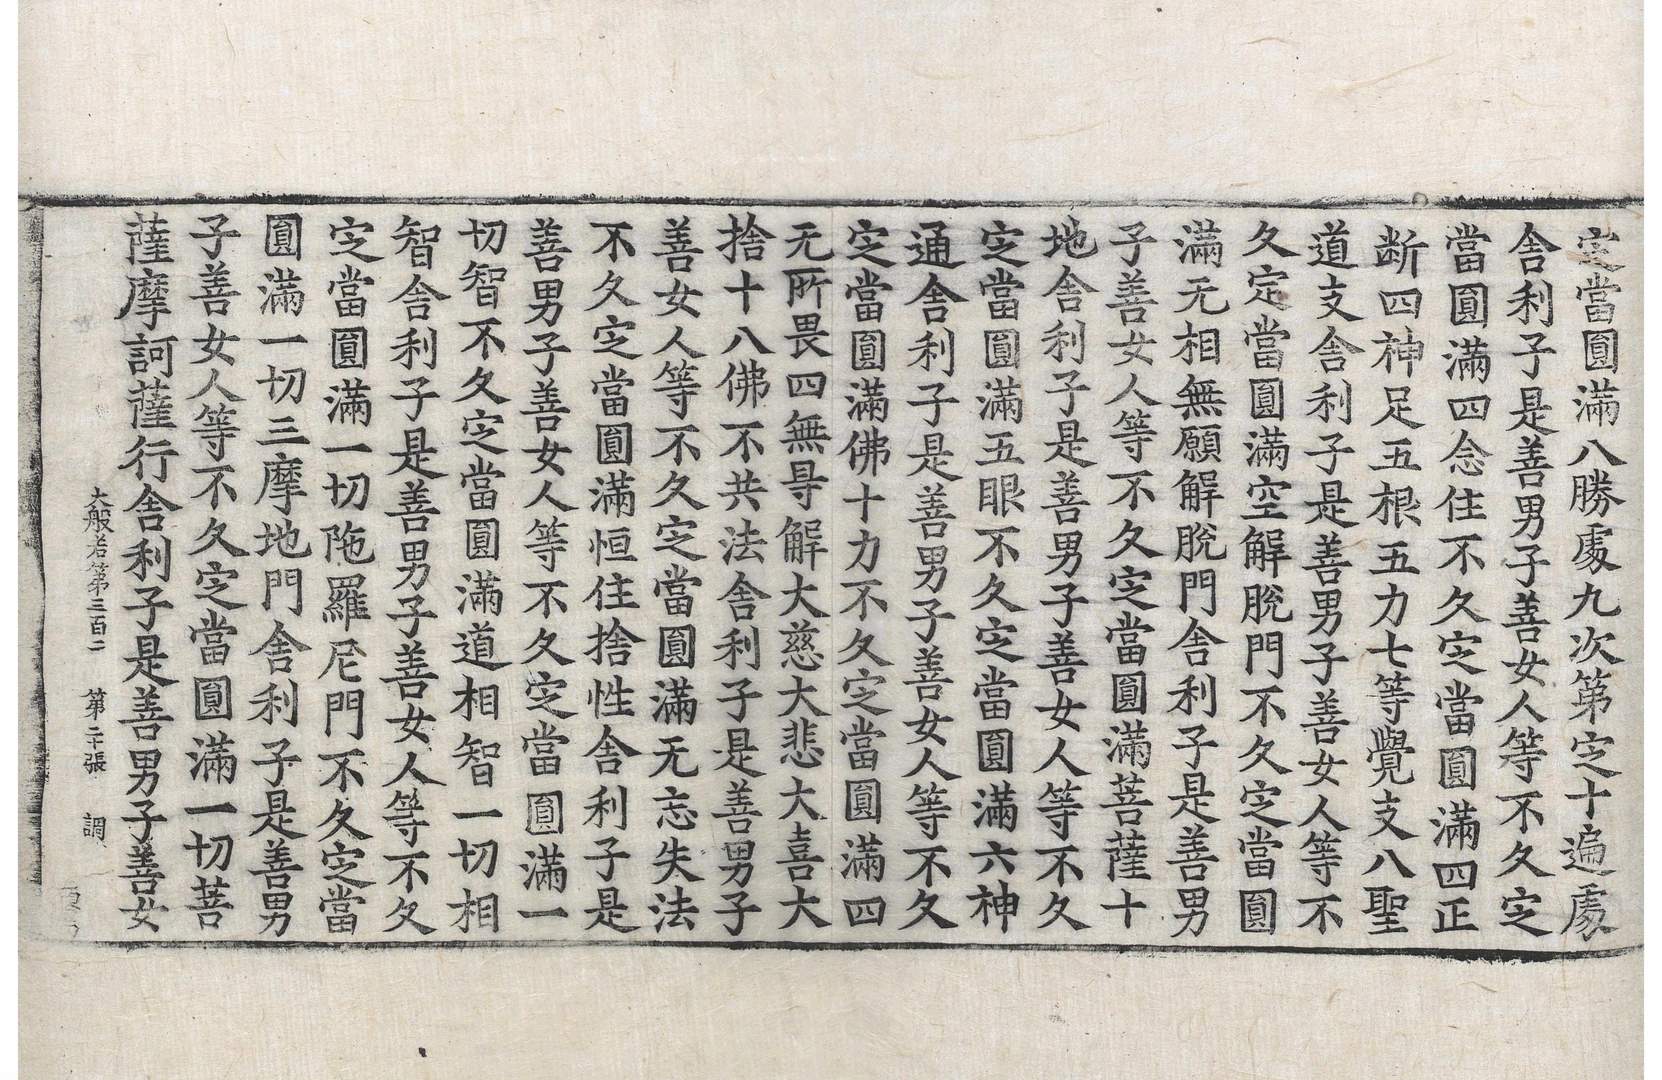 定當圓滿八勝處九次第定十遍處
舍利子是善男子善女人等不久定
當圓滿四念住不久定當圓滿四正
断四神足五根五力七等覺支八聖
道支舍利子是善男子善女人等不
久定當圓滿空解脫門不久定當圓
滿无相無願解脫門舍利子是善男
子善女人等不久定當圓滿菩薩十
地舍利子是善男子善女人等不久
定當圓滿五眼不久定當圓滿六神
通舍利子是善男子善女人等不久
定當圓滿佛十力不久定當圓滿四
无所畏四無㝵解大慈大悲大喜大
捨十八佛不共法舍利子是善男子
善女人等不久定當圓滿无忘失法
不久定當圓滿恒住捨性舍利子是
善男子善女人等不久定當圓滿一
切智不久定當圓滿道相智一切相
智舍利子是善男子善女人等不久
定當圓滿一切陁羅尼門不久定當
圓滿一切三摩地門舍利子是善男
子善女人等不久定當圓滿一切菩
薩摩訶薩行舍利子是善男子善女
大般若第三百二 第二十張 調